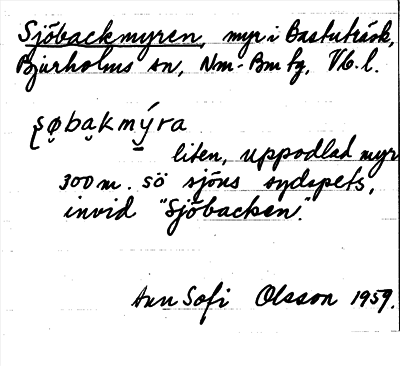 Sjöbackmyren, myr i Bastuträsk,
Bjurholms sn, Nm-Bm tg, Vb. l.
ʂøbakmýra
liten, uppodlad myr
300 m. sö sjöns sydspets,
invid "Sjöbacken".
Ann Sofi Olsson 1959.